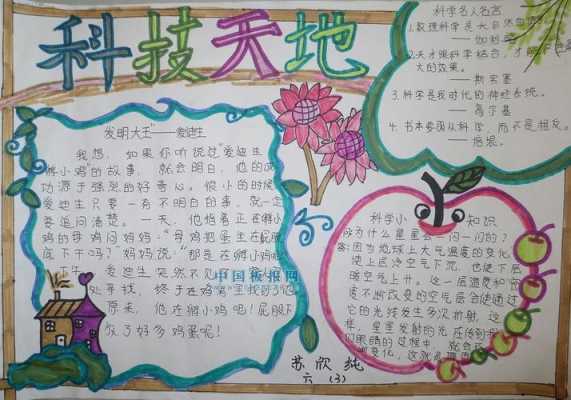 科技天地
发明大王——爱迪生
我想，如果你听说过“爱迪生
孵小鸡”的故事，就会明白，他的成
功源于强烈的好奇心。很小的时候
爱迪生只要一有不明白的事，就一定
要追问清楚。一天，他指着正在孵小
鸡的母鸡问妈妈：“母鸡把蛋坐在屁股
底下干吗？”妈妈说：“那是在孵小鸡呢
爱迪生突然不见
处寻找，终于在鸡窝里找到了他
原来，他在孵小鸡呢！屁股下
放了好多鸡蛋呢！
中国板报网
科学名人名言
1.数理科学是大自然
——伽利略
2.天才跟科学结合，才
大的效果。
——斯宾塞
3.科学是我时代的神经系统。
——高尔基
4.书本要跟从科学，而不是相反。
——培根。
科学小知识
问为什么星星会一闪一闪的？
答：因为地球上大气温度的变化
使上层冷空气下沉，也使下层
暖空气上升。这一层温度和密
度不断改变的空气层会使通过
它的光线发生多次折射，这
样，星星发射的光在传到
们眼睛的过程中，就会
变化，这就
苏欣纯
六（3）